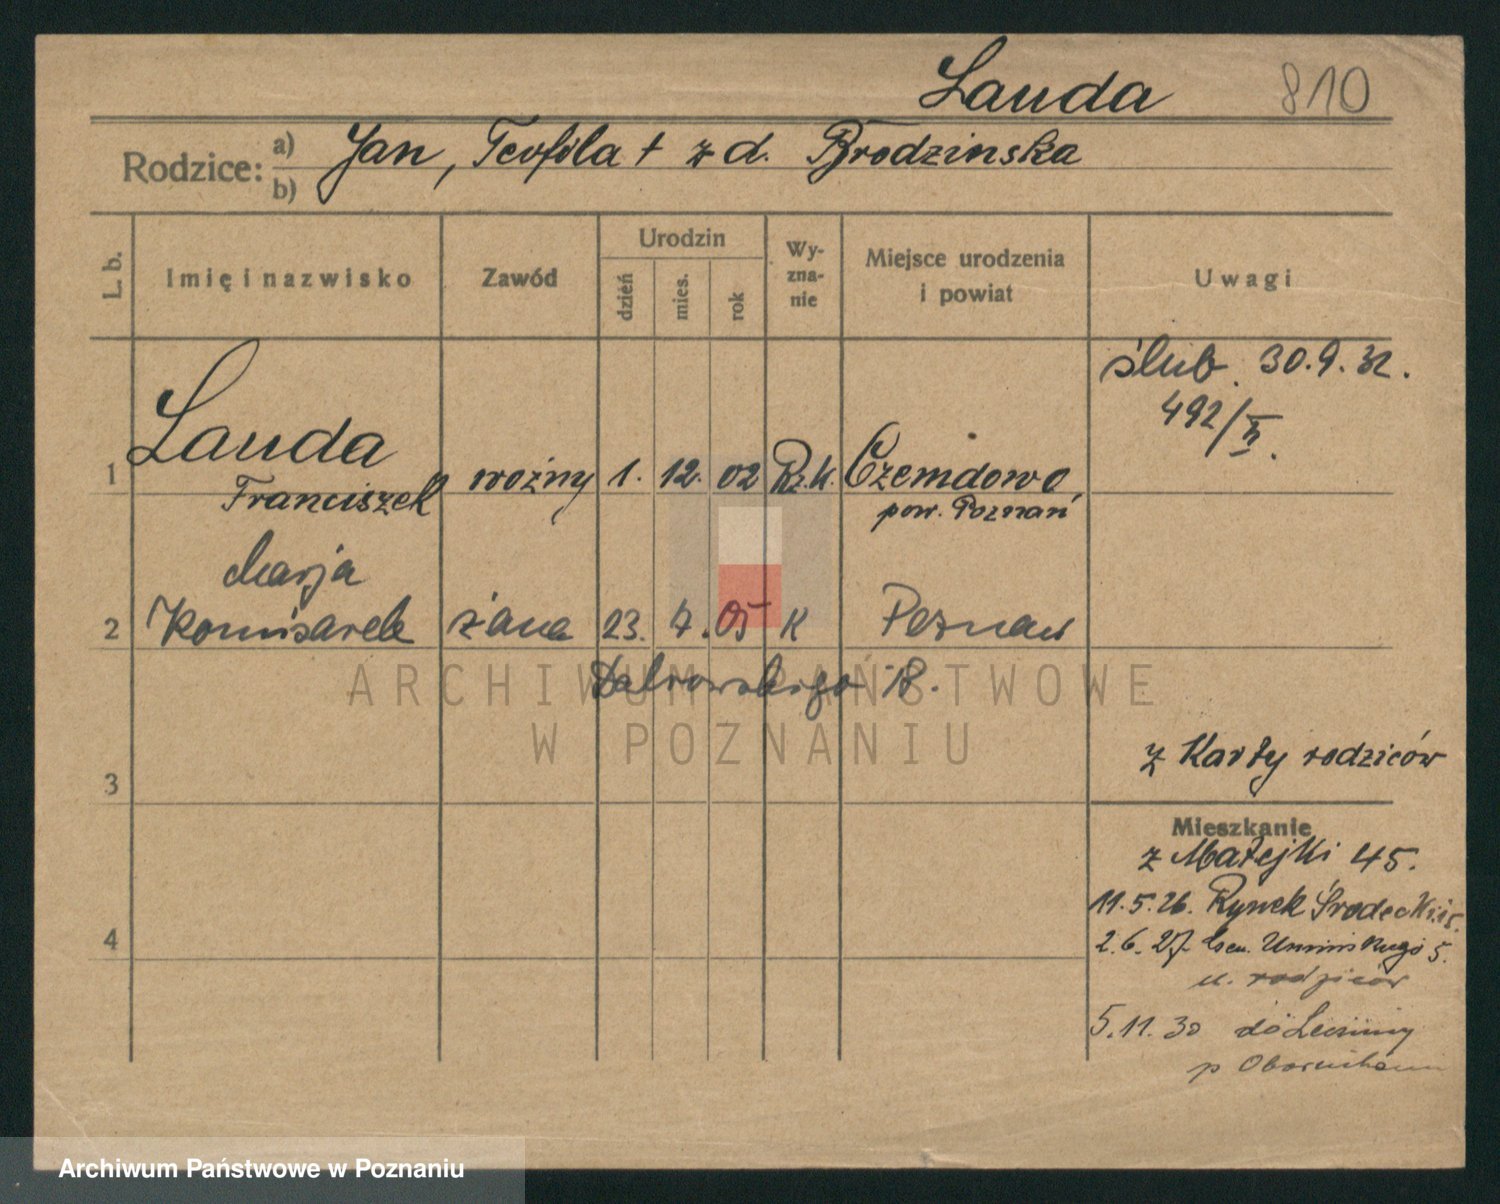 Landa 810
Rodzice: a) b) Jan, Teofila + z d. Brodzinska
L. b. Imię i nazwisko Zawód Urodzin dzień mies. rok Wyznanie Miejsce urodzenia i powiat Uwagi
ślub. 30.9.32.
492/II.
1 Landa Franciszek woźny 1. 12. 02 Rz.k. Czemdowo
pow. Poznań
Marja
2 Komisarek żona 23. 7. 05 K Poznań
Dąbrowskiego 18.
z Karty rodziców
3
Mieszkanie
z Matejki 45.
11.5.26. Rynek Śródecki 15.
2.6.27 Gen. Umińskiego 5.
u. rodziców
4
5.11.30 do
p Obornikami
ARCHIWUM PAŃSTWOWE
W POZNANIU
Archiwum Państwowe w Poznaniu